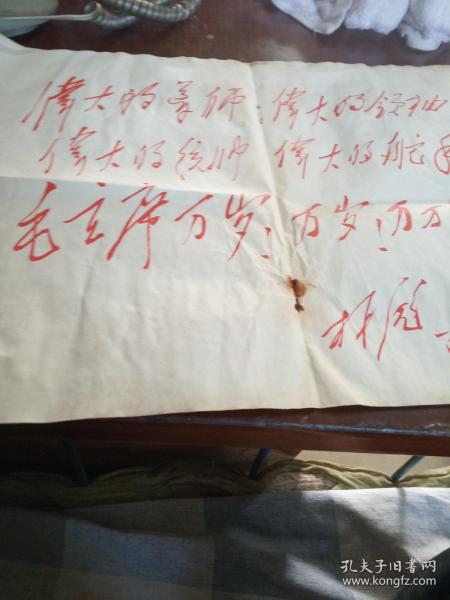 偉大的导师 偉大的领袖
偉大的统帅 偉大的舵手
毛主席万岁！万岁！万万
林彪
孔夫子旧书网
www.kongfz.com